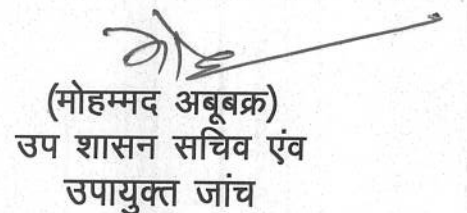 (मोहम्मद अबूबक्र)
उप शासन सचिव एंव
उपायुक्त जांच